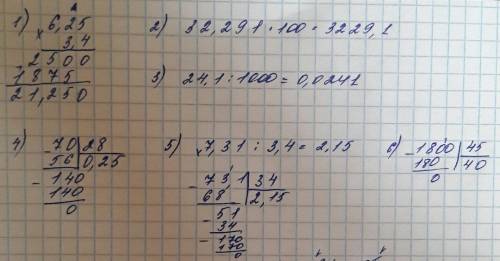 1) × 6,25
3,4
2500
1875
21,250
2) 32,291 · 100 = 3229,1
3) 24,1 : 1000 = 0,0241
4) - 70 | 28
56 | 0,25
- 140
140
0
5) 7,31 : 3,4 = 2,15
- 73,1 | 34
68 | 2,15
- 51
34
- 170
170
0
6) - 1800 | 45
180 | 40
0